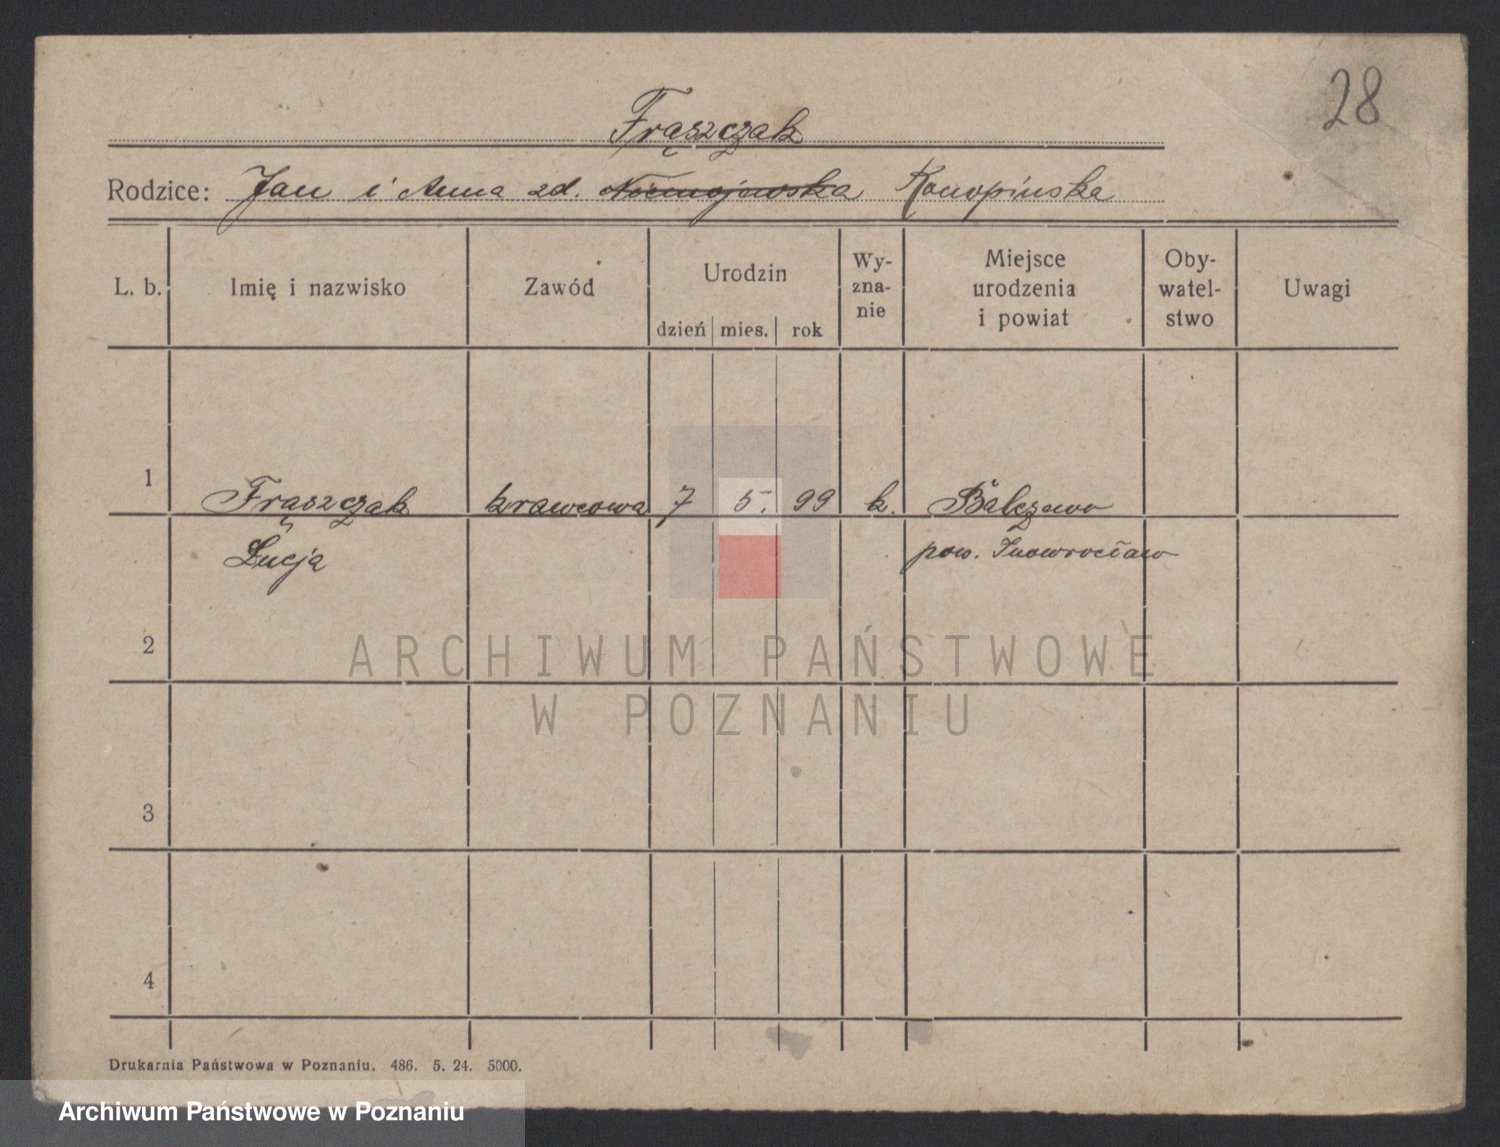 28
Frąszczak
Rodzice: Jan i Anna zd. Niemojewska Konopińska
L. b. Imię i nazwisko Zawód Urodzin dzień mies. rok Wy-zna-nie Miejsce urodzenia i powiat Oby-watel-stwo Uwagi
1 Frąszczak krawcowa 7 5. 99 k. Balczewo
Łucja pow. Inowrocław
2
ARCHIWUM PAŃSTWOWE
W POZNANIU
3
4
Drukarnia Państwowa w Poznaniu. 486. 5. 24. 5000.
Archiwum Państwowe w Poznaniu